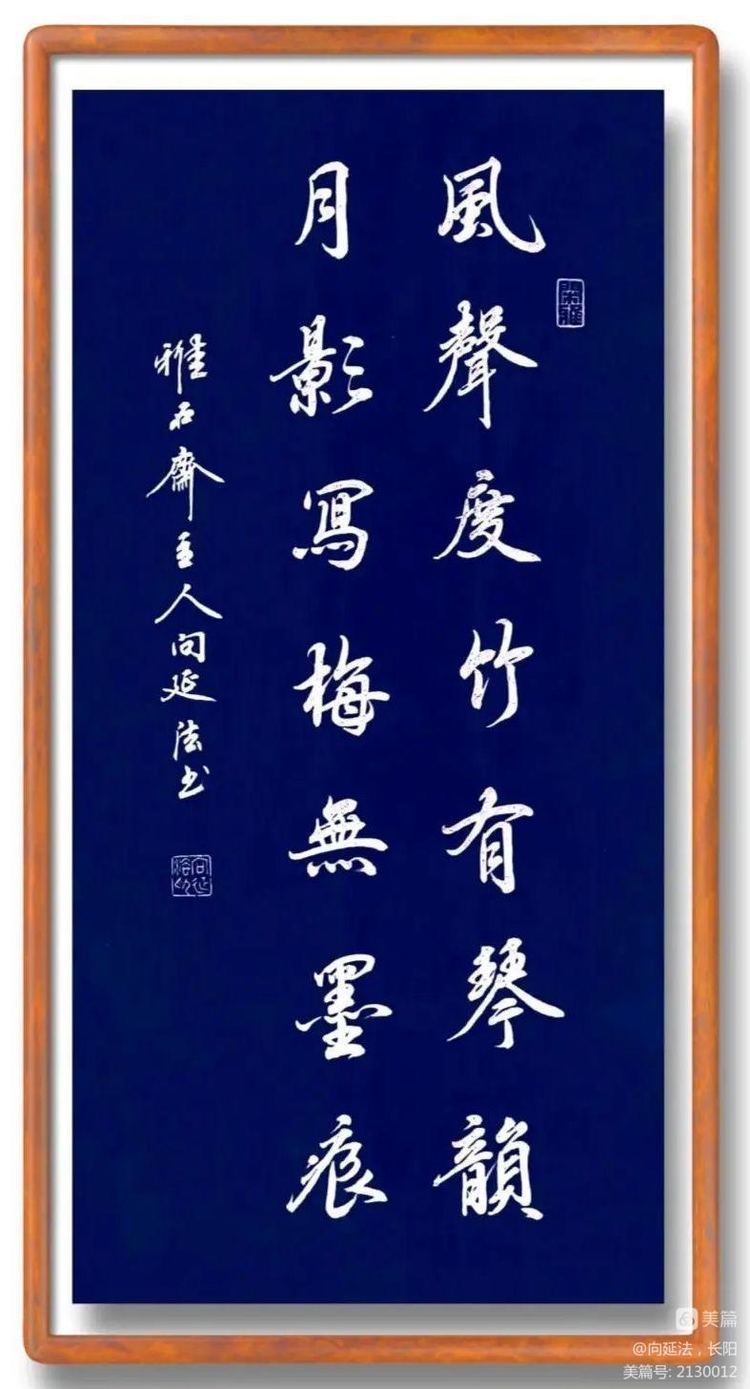 風聲度竹有琴韻
月影寫梅無墨痕
雅石齋主人向延法书
美篇
@向延法，长阳
美篇号: 2130012